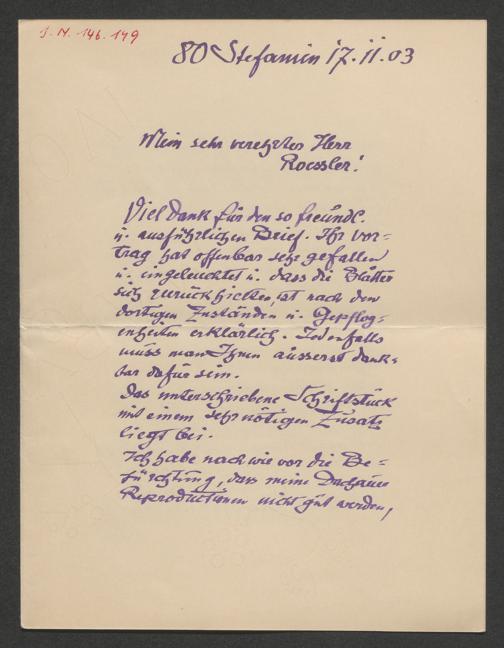 J. N. 146.149
80 Stefanin 17.II.03
Mein sehr verehrter Herr
Roessler!
Viel Dank für den so freundl.
u. ausführlichen Brief. Ihr Vor-
trag hat offenbar sehr gefallen
u. eingeleuchtet u. dass die Blätter
sich zurückhielten, ist nach den
dortigen Zuständen u. Gepflog-
enheiten erklärlich. Jedenfalls
muss man Ihnen äusserst dank-
bar dafür sein.
Das unterschriebene Schriftstück
mit einem sehr nötigen Zusatz
liegt bei.
Ich habe nach wie vor die Be-
fürchtung, dass meine Dachauer
Reproductionen nicht gut werden,